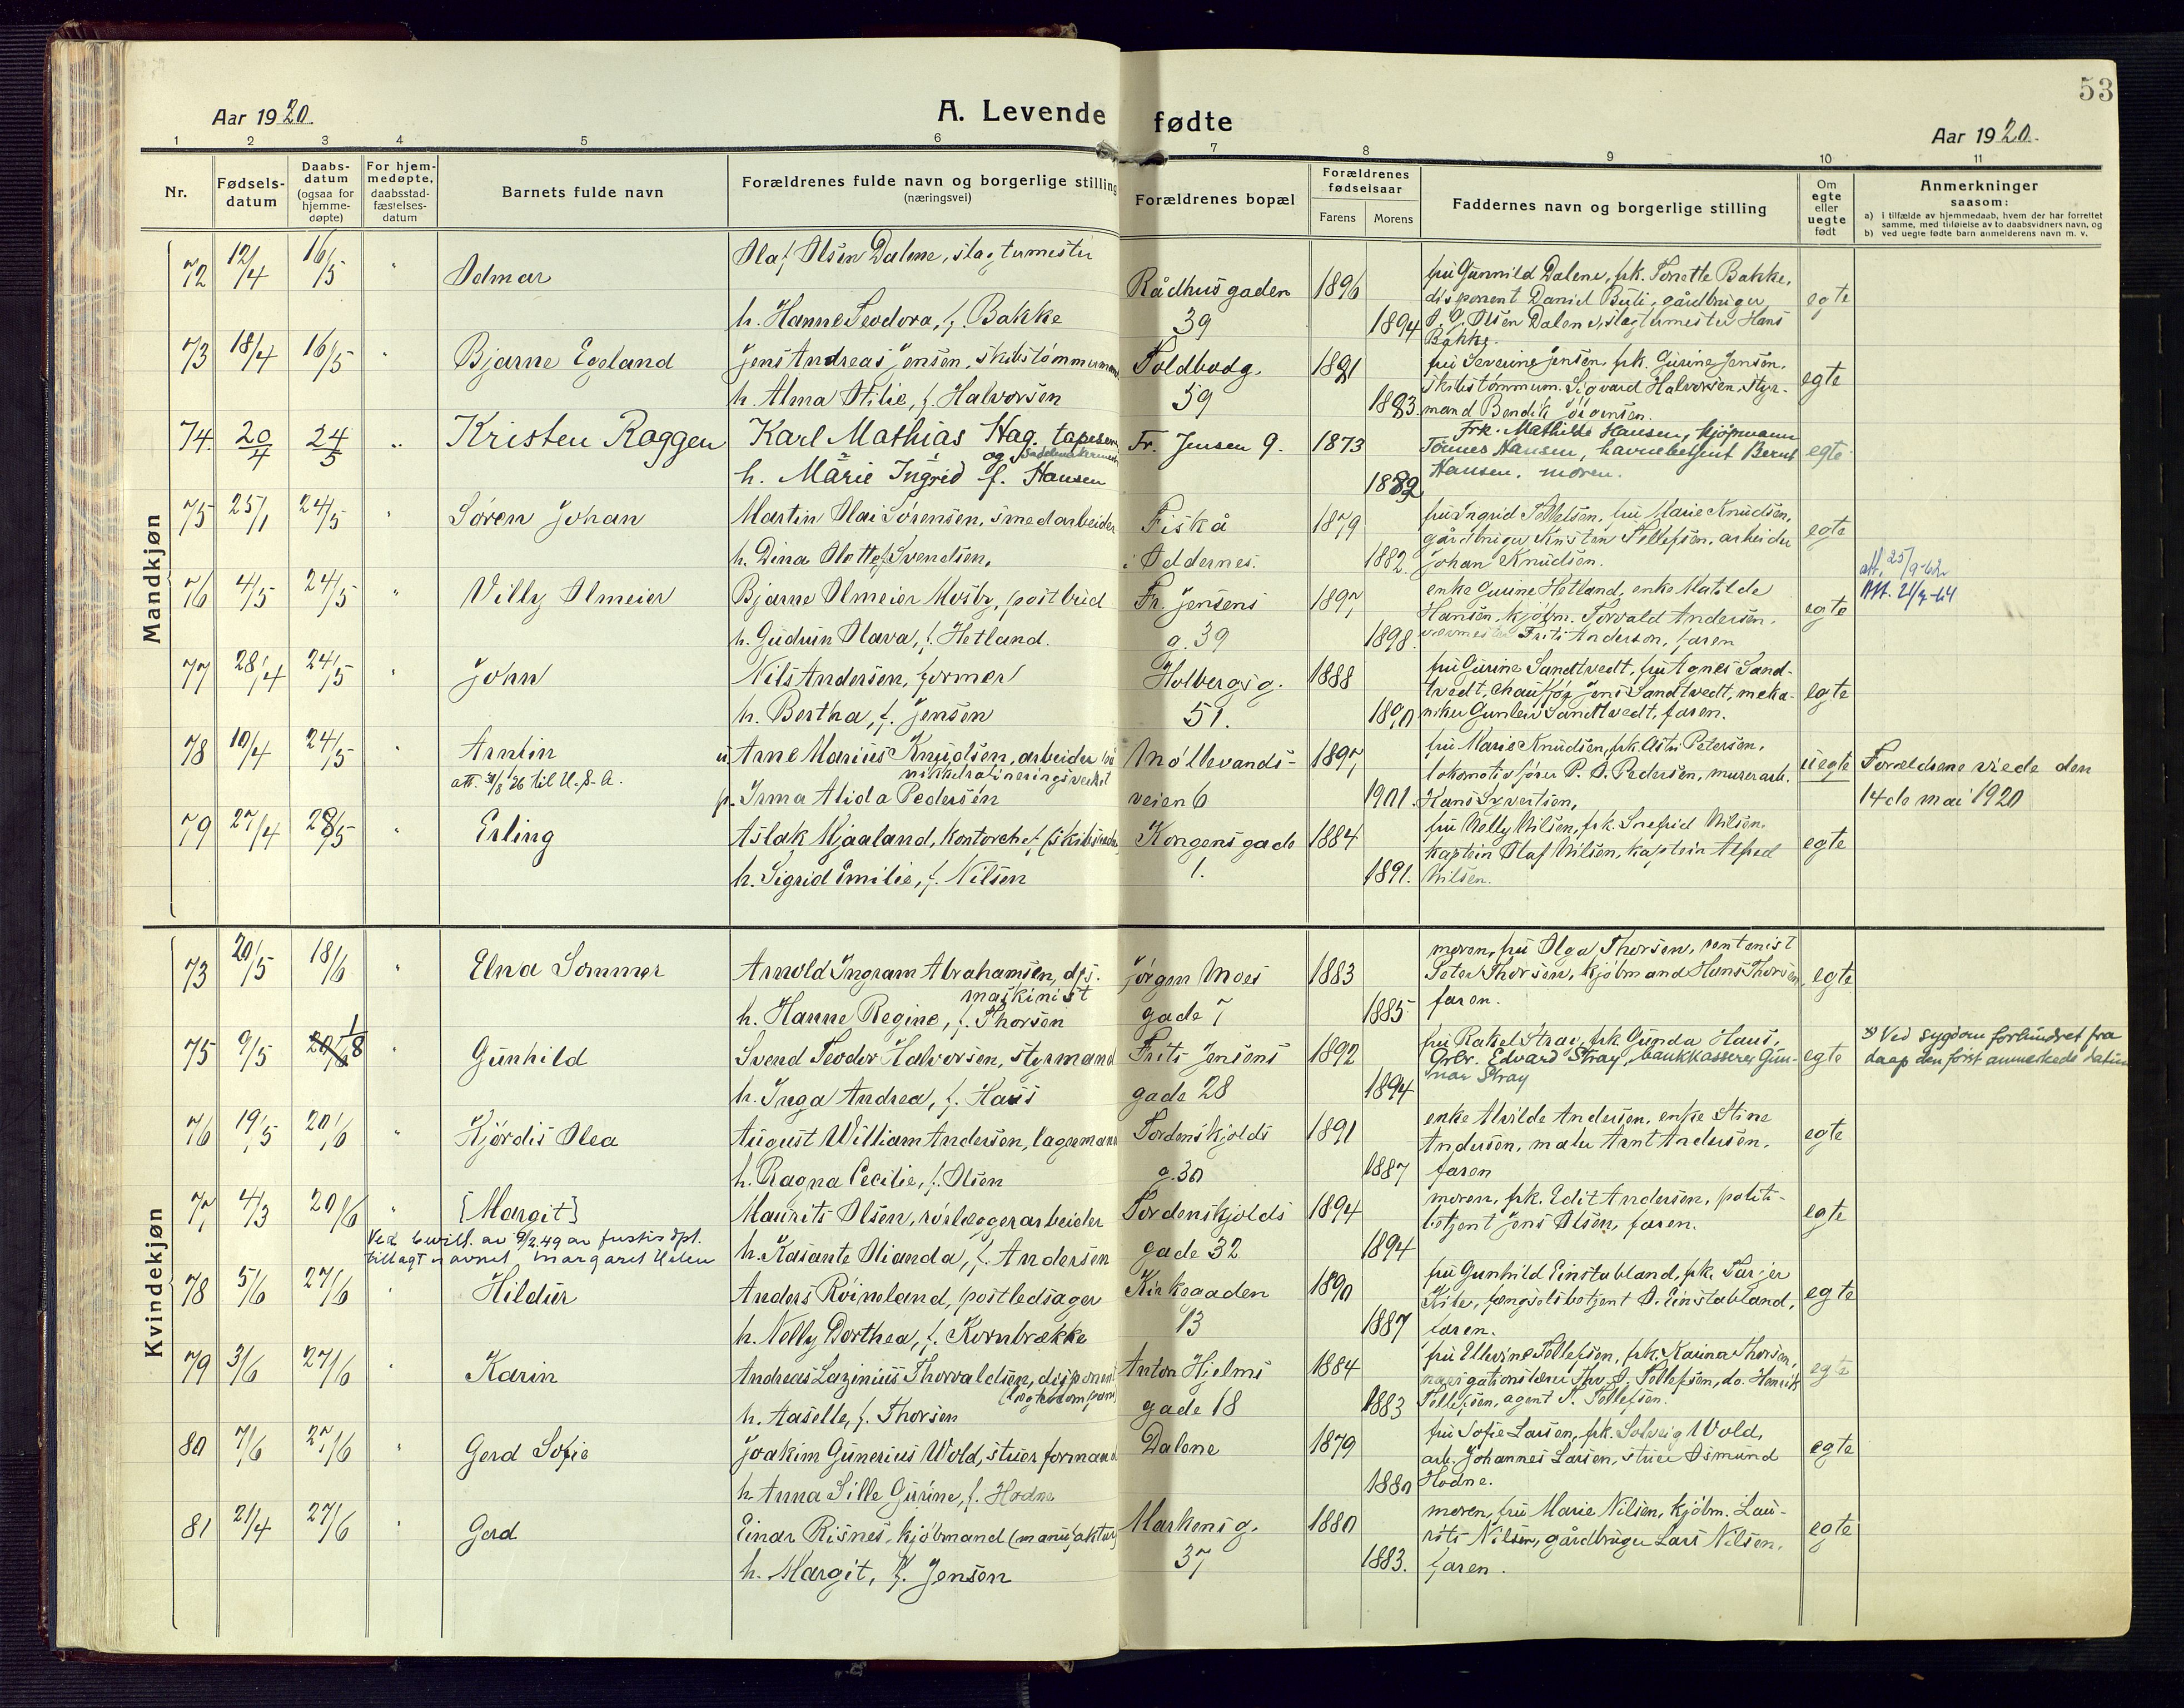 53
Aar 1920.
A. Levende fødte
Aar 1920.
1 2 3 4 5 6 7 8 9 10 11
Nr.
Fødsels-
datum
Daabs-
datum
(ogsaa for
hjemme-
døpte)
For hjem-
medøpte,
daabsstad-
fæstelses-
datum
Barnets fulde navn
Forældrenes fulde navn og borgerlige stilling
(næringsvei)
Forældrenes bopæl
Forældrenes
fødselsaar
Farens Morens
Faddernes navn og borgerlige stilling
Om
egte
eller
uegte
født
Anmerkninger
saasom:
a) i tilfælde av hjemmedaab, hvem der har forrettet
samme, med tilføielse av to daabsvidners navn, og
b) ved uegte fødte barn anmelderens navn m. v.
Mandkjøn
72 12/4 16/5 " Odmar
Olaf Olsen Dalene, slagtermester
h. Hanne Teodora, f. Bakke
Rådhusgaden
39
1896
1894
fru Gunnild Dalene, frk. Tonette Bakke,
disponent Daniel Buli, gårdbruger
O. O. Olsen Dalene, slagtermester Hans
Bakke.
egte
73 18/4 16/5 " Bjarne Egeland
Jens Andreas Jensen, skibstømmermand
h. Alma Otilie, f. Halvorsen
Toldbodg.
59
1891
1893.
fru Severine Jensen, frk. Gurine Jensen,
skibstømmerm. Sigvard Halvorsen, styr-
mand Bendik Jørgensen.
egte
74. 20/4 24/5 " Kristen Roggen
Karl Mathias Hag. tapetserer
og Sadelmakermester
h. Marie Ingrid f. Hansen
Fr. Jensen 9.
1873
1882
Frk. Mathilde Hansen, kjøpmann
Tönnes Hansen, havnebetjent Bernt
Hansen, moren.
egte
75 25/1 24/5 " Søren Johan
Martin Olai Sørensen, smedarbeider
h. Dina Olette f. Svendsen,
Fiskå
i Oddernes.
1879
1882.
fru Ingrid Tellefsen, fru Marie Knudsen,
gårdbruger Kristen Tellefsen, arbeider
Johan Knudsen.
egte
76 4/5 24/5 " Villy Almeier
Bjarne Almeier Mosby, postbud
h. Gudrun Olava, f. Hetland.
Fr. Jensens
g. 39
1897
1898.
enke Gurine Hetland, enke Matilde
Hansen, kjøbm. Torvald Andersen,
Frits Anderson, faren
egte
att. 25/9-62
Att. 21/7-64
77 28/4 24/5 " John
Nils Andersen, former
h. Bertha, f. Jensen
Holbergsg.
51.
1888
1890
fru Gurine Sandtvedt, fru Agnes Sand-
tvedt, chauffør Jens Sandtvedt, meka-
niker Gunleiv Sandtvedt, faren.
egte
78 10/4 24/5 " Arnfin
att. 31/8 26 til U.S.A.
u. Arne Marius Knudsen, arbeider på
nikkelrafineringsverket
p. Irma Alida Pedersen
Møllevands-
veien 6
1897
1901.
fru Marie Knudsen, frk. Astri Petersen,
lokomotivfører P. O. Pedersen, murerarb.
Hans Syvertsen,
uegte
Forældrene viede den
14de mai 1920
79 27/4 28/5 " Erling
Aslak Mjaaland, kontorchef (skibsrederi)
h. Sigrid Emilie, f. Nilsen
Kongensgade
1.
1884
1891.
fru Nelly Nilsen, frk. Snefrid Nilsen,
kaptein Olaf Nilsen, kaptein Alfred
Nilsen.
egte
Kvindekjøn
73 20/5 18/6 " Elna Sommer
Arnold Ingram Abrahamsen, dps.
maskinist
h. Hanne Regine, f. Thorsen
Jörgen Moes
gade 7
1883
1885
moren, fru Olga Thorsen, rentenist
Peter Thorsen, kjöbmand Hans Thorsen,
faren.
egte
75 9/5 20/6 1/8 " Gunhild
Svend Teodor Halvorsen, styrmand
h. Inga Andrea, f. Haus
Frits Jensens
gade 28
1892
1894
fru Rakel Stray, frk. Gunda Haus,
Grbr. Edvard Stray, bankkasserer Gun-
nar Stray
egte
*) Ved sygdom forhindret fra
daap den først anmerkede datum
76 19/5 20/6 " Hjørdis Olea
August William Andersen, lagermand
h. Ragna Cecilie, f. Olsen
Tordenskjolds
g. 30
1891
1887
enke Alvilde Andersen, enke Stine
Andersen, maler Arnt Andersen,
faren
egte
77 4/3 20/6 " [Margit]
Ved bevill. av 9/2.49 av Justis dpt.
tillagt navnet Margaret Helen
Maurits Olsen, rörlæggerarbeider
h. Kasante Olianda, f. Andersen
Tordenskjolds
gade 32
1894
1894
moren, frk. Edit Andersen, politi-
betjent Jens Olsen, faren.
egte
78 5/6 27/6 " Hildur
Anders Röineland, postledsager
h. Nelly Dorthea, f. Kornbrække
Kirkegaden
13
1890
1887
fru Gunhild Einstabland, frk. Tarjer
Kile, fængselsbetjent O. Einstabland,
faren.
egte
79 3/6 27/6 " Karin
Andreas Lazinius Thorvaldsen, disponent
h. Aaselle, f. Thorsen
Anton Hjelms
gade 18
1884
1883
fru Ellevine Tellefsen, frk. Karina Thorsen,
navigationslærer Thv. O. Tellefsen, do. Henrik
Tellefsen, agent T. Tellefsen.
egte
80 7/6 27/6 " Gerd Sofie
Joakim Gunerius Wold, stuerformand
h. Anna Sille Gurine, f. Hodne
Dalene
1879
1880
fru Sofie Larsen, frk. Solveig Wold,
arb. Johannes Larsen, stuer Osmund
Hodne.
egte
81 21/4 27/6 " Gerd
Einar Risnes, kjöbmand (manufaktur)
h. Margit, f. Jensen
Markensg.
37
1880
1883.
moren, fru Marie Nilsen, kjöbm. Lau-
rits Nilsen, gårdbruger Lars Nilsen,
faren.
egte